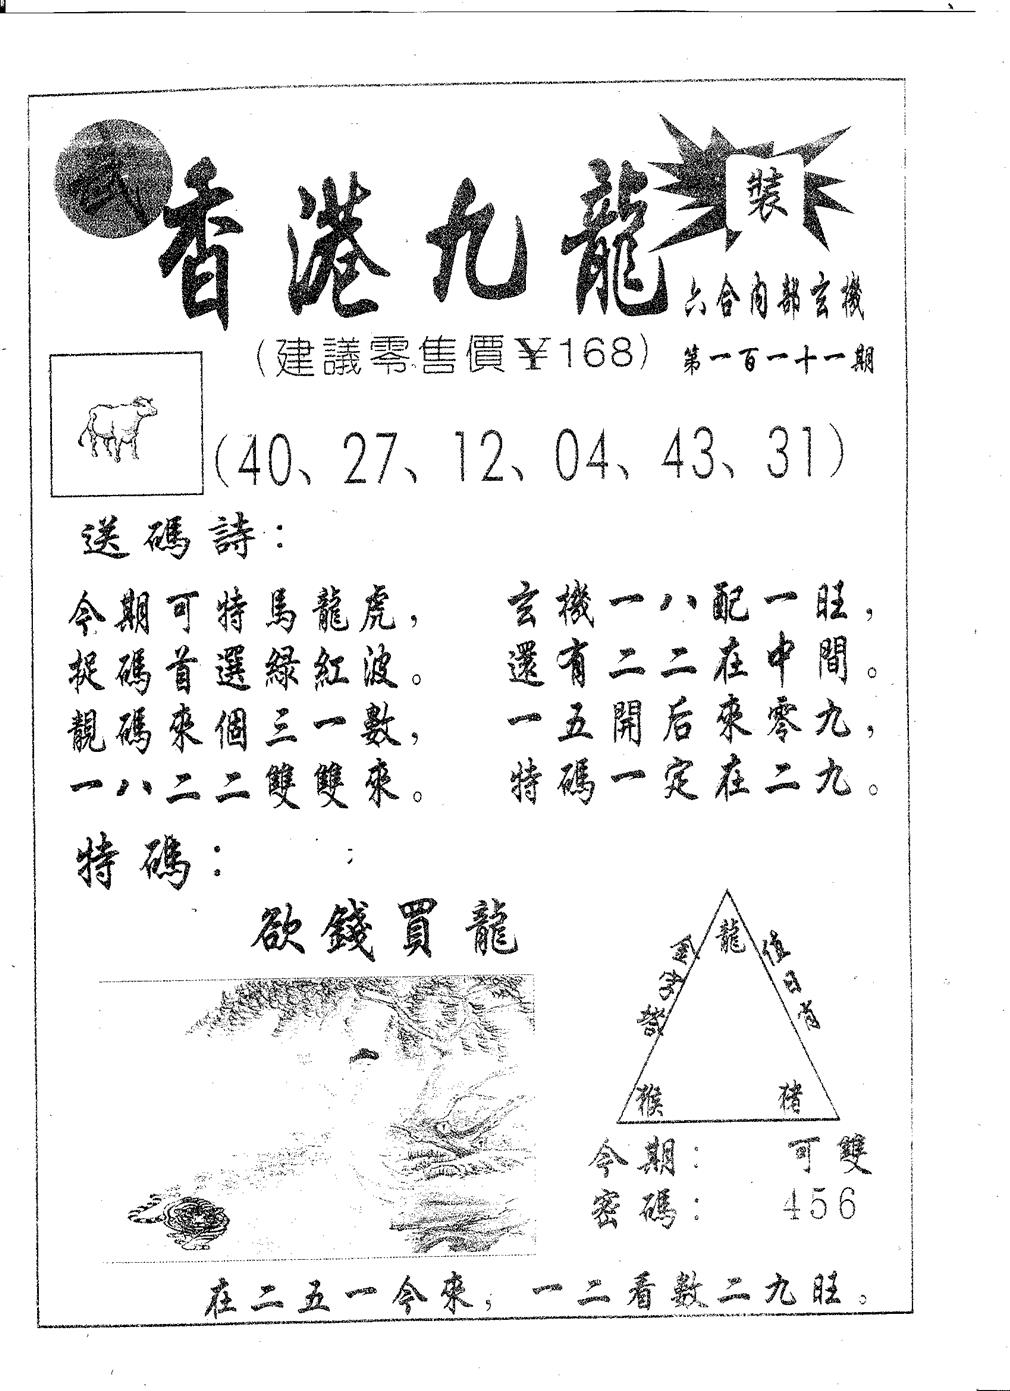 武
香港九龍
裝
六合內部玄機
(建議零售價¥168)
第一百一十一期
(40、27、12、04、43、31)
送碼詩：
今期可特馬龍虎，
捉碼首選綠紅波。
靚碼來個三一數，
一八二二雙雙來。
玄機一八配一旺，
還有二二在中間。
一五開后來零九，
特碼一定在二九。
特碼：
欲錢買龍
龍
值日肖
猴
猪
今期： 可雙
密碼： 456
在二五一今來，一二看數二九旺。